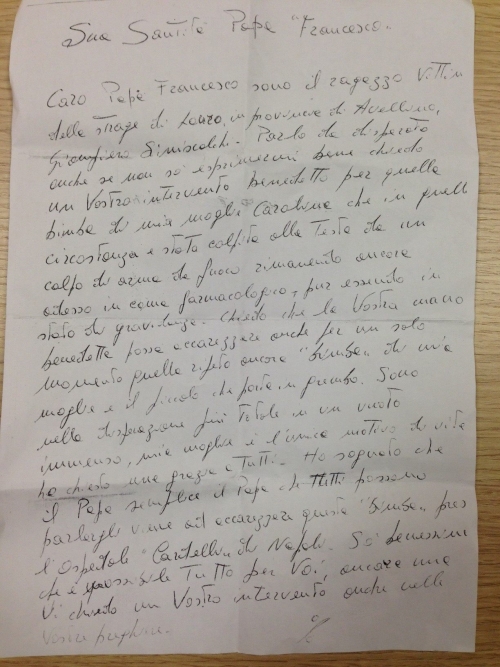 Sua Santità Papa "Francesco"
Caro Papa Francesco sono il ragazzo Vittim
della strage di Lauro, in provincia di Avellino,
Siniscalchi. Parlo da disperato
anche se non so esprimermi bene chiedo
un Vostro intervento benedetto per quella
bimba di mia moglie Carolina che in quell
circostanza è stata colpita alla testa da un
colpo di arma da fuoco rimanendo ancora
adesso in coma farmacologico, pur essendo in
stato di gravidanza. Chiedo che la Vostra mano
benedetta possa accarezzare anche per un solo
momento quella ripeto ancora "bimba" di mia
moglie e il piccolo che porta in grembo. Sono
nella disperazione più totale in un vuoto
immenso, mia moglie è l'unico motivo di vita
ho chiesto una grazia a Tutti. Ho sognato che
il Papa semplice il Papa che tutti possono
parlargli viene ad accarezzare questa "bimba" pres
l'Ospedale "Cardarelli" di Napoli. So benissimo
che è possibile Tutto per Voi, ancora una
Vi chiedo un Vostro intervento anche nelle
Vostre preghiere.